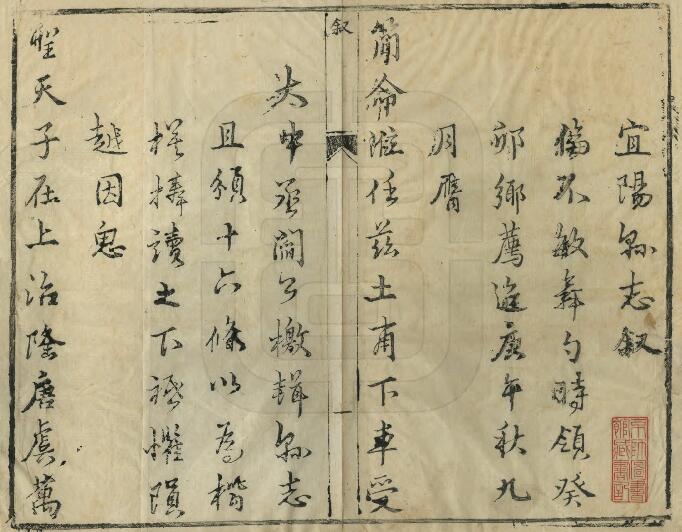 宜陽縣志叙
不敏舞勺時領癸
卯鄉薦迨庚午秋九
月膺
簡命陟任兹土甫下車受
叙
一
大中丞閻公檄輯縣志
且頒十六條以為楷
模捧讀之下祗懼隕
越因思
聖天子在上治隆唐虞萬